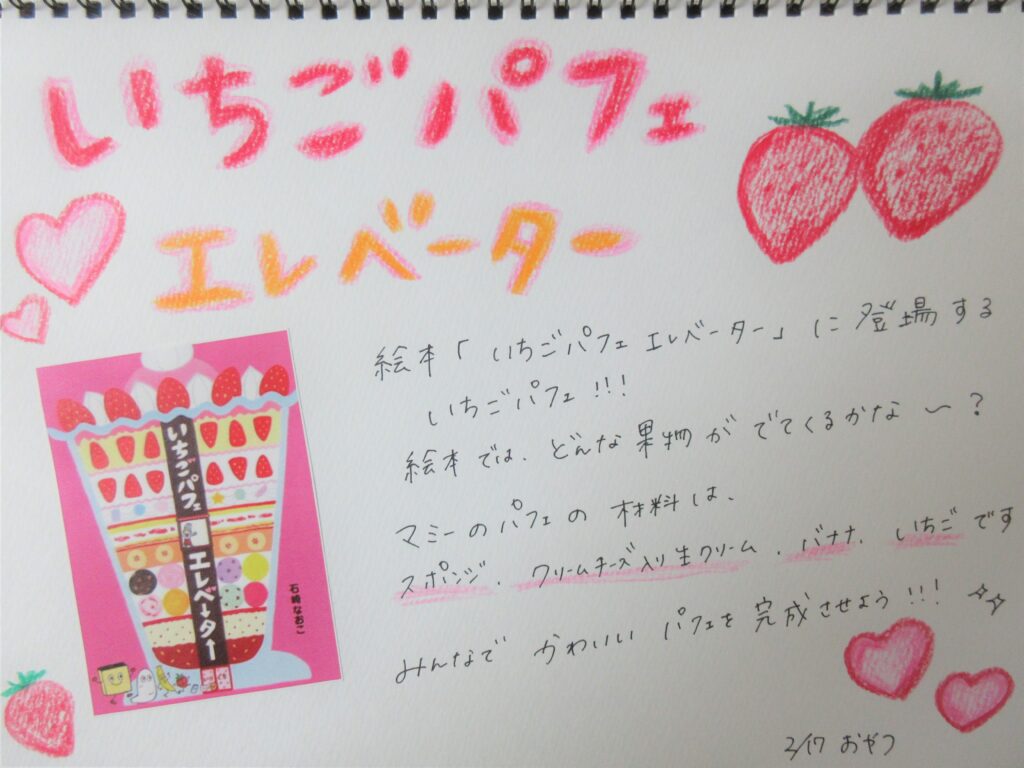 いちごパフェ
エレベーター
絵本「いちごパフェエレベーター」に登場する
いちごパフェ!!!
絵本では、どんな果物がでてくるかな〜?
マミーのパフェの材料は、
スポンジ、クリームチーズ入り生クリーム、バナナ、いちごです
みんなで かわいい パフェを完成させよう!!!
2/17 おやつ
いちごパフェ
エレベーター
石崎なおこ